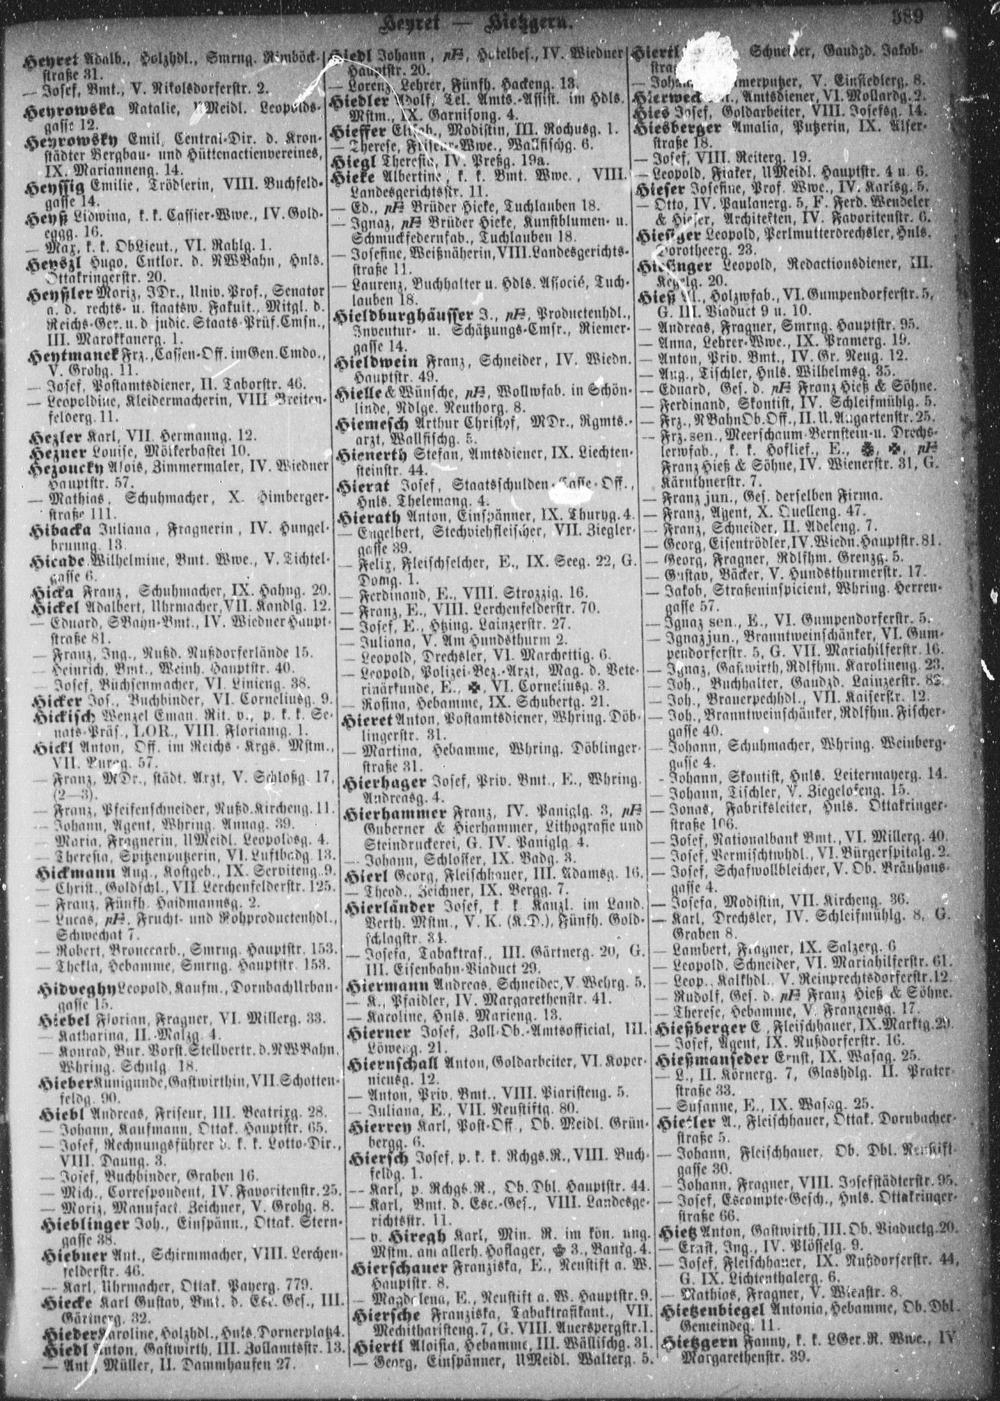 Heyret — Hietzgern.
389
Heyret Adalb., Holzhdl., Smrng. Rimböck-
straße 31.
— Josef, Bmt., V. Nikolsdorferstr. 2.
Heyrowska Natalie, UMeidl. Leopolds-
gasse 12.
Heyrowsky Emil, Central-Dir. d. Kron-
städter Bergbau- und Hüttenactienvereines,
IX. Marianneng. 14.
Heyssig Emilie, Trödlerin, VIII. Buchfeld-
gasse 14.
Heyß Lidwina, k. k. Cassier-Wwe., IV. Gold-
eggg. 16.
— Max, k. k. ObLieut., VI. Rahlg. 1.
Heyszl Hugo, Cntlor. d. NWBahn, Hnls.
Ottakringerstr. 20.
Heyßler Moriz, JDr., Univ. Prof., Senator
a. d. rechts- u. staatsw. Fakult., Mitgl. d.
Reichs-Ger. u. d. judic. Staats-Prüf. Cmsn.,
III. Marokkanerg. 1.
Heytmanek Frz., Cassen-Off. im Gen. Cmdo.,
V. Grohg. 11.
— Josef, Postamtsdiener, II. Taborstr. 46.
— Leopoldine, Kleidermacherin, VIII. Breiten-
felderg. 11.
Hezler Karl, VII. Hermanng. 12.
Hezner Louise, Mölkerbastei 10.
Hezoucky Alois, Zimmermaler, IV. Wiedner
Hauptstr. 57.
— Mathias, Schuhmacher, X. Himberger-
straße 111.
Hibacka Juliana, Fragnerin, IV. Hungel-
brunng. 13.
Hicade Wilhelmine, Bmt. Wwe., V. Tichtel-
gasse 6.
Hicka Franz, Schuhmacher, IX. Hahng. 20.
Hickel Adalbert, Uhrmacher, VII. Kandlg. 12.
— Eduard, SBahn-Bmt., IV. Wiedner Haupt-
straße 81.
— Franz, Ing., Nußd. Nußdorferlände 15.
— Heinrich, Bmt., Weinh. Hauptstr. 40.
— Josef, Büchsenmacher, VI. Linieng. 38.
Hicker Jos., Buchbinder, VI. Corneliusg. 9.
Hickisch Wenzel Eman. Rit. v., p. k. k. Se-
nats-Präs., LOR., VIII. Florianig. 1.
Hickl Anton, Off. im Reichs-Krgs. Mstm.,
VII. Burgg. 57.
— Franz, MDr., städt. Arzt, V. Schloßg. 17,
(2—3).
— Franz, Pfeifenschneider, Nußd. Kircheng. 11.
— Johann, Agent, Whring. Annag. 39.
— Maria, Fragnerin, UMeidl. Leopoldsg. 4.
— Theresia, Spitzenputzerin, VI. Luftbadg. 13.
Hickmann Aug., Kostgeb., IX. Serviteng. 9.
— Christ., Goldschl., VII. Lerchenfelderstr. 125.
— Franz, Fünfh. Haidmannsg. 2.
— Lucas, Frucht- und Rohproductenhdl.,
Schwechat 7.
— Robert, Broncearb., Smrng. Hauptstr. 153.
— Thekla, Hebamme, Smrng. Hauptstr. 153.
Hidveghy Leopold, Kaufm., Dornbach Urban-
gasse 15.
Hiebel Florian, Fragner, VI. Millerg. 33.
— Katharina, II. Malzg. 4.
— Konrad, Bur. Vorst. Stellvertr. d. NWBahn,
Whring. Schulg. 18.
Hieber Kunigunde, Gastwirthin, VII. Schotten-
feldg. 90.
Hiebl Andreas, Friseur, III. Beatrixg. 28.
— Johann, Kaufmann, Ottak. Hauptstr. 65.
— Josef, Rechnungsführer b. k. k. Lotto-Dir.,
VIII. Daung. 3.
— Josef, Buchbinder, Graben 16.
— Mich., Correspondent, IV. Favoritenstr. 25.
— Moriz, Manufact. Zeichner, V. Grohg. 8.
Hieblinger Joh., Einspänn., Ottak. Stern-
gasse 38.
Hiebner Ant., Schirmmacher, VIII. Lerchen-
felderstr. 46.
— Karl, Uhrmacher, Ottak. Payerg. 779.
Hiecke Karl Gustav, Bmt. d. Esc. Ges., III.
Gärtnerg. 32.
Hieder Karoline, Holzhdl., Hnls. Dornerplatz 4.
Hiedl Anton, Gastwirth, III. Zollamtsstr. 13.
— Ant., Müller, II. Dammhaufen 27.
Hiedl Johann, Hotelbes., IV. Wiedner
Hauptstr. 20.
— Lorenz, Lehrer, Fünfh. Hackeng. 13.
Hiedler Adolf, Tel. Amts-Assist. im Hdls.
Mstm., IX. Garnisong. 4.
Hieffer Elisab., Modistin, III. Rochusg. 1.
— Therese, Friseur-Wwe., Wallfischg. 6.
Hiegl Theresia, IV. Preßg. 19a.
Hieke Albertine, k. k. Bmt. Wwe., VIII.
Landesgerichtsstr. 11.
— Ed., Brüder Hieke, Tuchlauben 18.
— Ignaz, Brüder Hieke, Kunstblumen- u.
Schmuckfedernfab., Tuchlauben 18.
— Josefine, Weißnäherin, VIII. Landesgerichts-
straße 11.
— Laurenz, Buchhalter u. Hdls. Associé, Tuch-
lauben 18.
Hieldburghäusser J., Productenhdl.,
Inventur- u. Schätzungs-Cmsr., Riemer-
gasse 14.
Hieldwein Franz, Schneider, IV. Wiedn.
Hauptstr. 49.
Hielle & Wünsche, Wollwfab. in Schön-
linde, Ndlge. Neuthorg. 8.
Hiemesch Arthur Christof, MDr., Rgmts.-
arzt, Wallfischg. 5.
Hienerth Stefan, Amtsdiener, IX. Liechten-
steinstr. 44.
Hierat Josef, Staatsschulden-Casse-Off.,
Hnls. Thelemang. 4.
Hierath Anton, Einspänner, IX. Thuryg. 4.
— Engelbert, Stechviehfleischer, VII. Ziegler-
gasse 39.
— Felix, Fleischselcher, E., IX. Seeg. 22, G.
Domg. 1.
— Ferdinand, E., VIII. Strozzig. 16.
— Franz, E., VIII. Lerchenfelderstr. 70.
— Josef, E., Htzing. Lainzerstr. 27.
— Juliana, V. Am Hundsthurm 2.
— Leopold, Drechsler, VI. Marchettig. 6.
— Leopold, Polizei-Bez.-Arzt, Mag. d. Vete-
rinärkunde, E., VI. Corneliusg. 3.
— Rosina, Hebamme, IX. Schubertg. 21.
Hieret Anton, Postamtsdiener, Whring. Döb-
lingerstr. 31.
— Martina, Hebamme, Whring. Döblinger-
straße 31.
Hierhager Josef, Priv. Bmt., E., Whring.
Andreasg. 4.
Hierhammer Franz, IV. Paniglg. 3,
Guberner & Hierhammer, Lithografie und
Steindruckerei, G. IV. Paniglg. 4.
— Johann, Schlosser, IX. Badg. 3.
Hierl Georg, Fleischhauer, III. Adamsg. 16.
— Theod., Zeichner, IX. Bergg. 7.
Hierländer Josef, k. k. Kanzl. im Land.
Verth. Mstm., V. K. (K.D.), Fünfh. Gold-
schlagstr. 34.
— Josefa, Tabaktraf., III. Gärtnerg. 20, G.
III. Eisenbahn-Viaduct 29.
Hiermann Andreas, Schneider, V. Wehrg. 5.
— K., Pfaidler, IV. Margarethenstr. 41.
— Karoline, Hnls. Marieng. 13.
Hierner Josef, Zoll-Ob.-Amtsofficial, III.
Löweng. 21.
Hiernschall Anton, Goldarbeiter, VI. Koper-
nicusg. 12.
— Anton, Priv. Bmt., VIII. Piaristeng. 5.
— Juliana, E., VII. Neustiftg. 80.
Hierrey Karl, Post-Off., Ob. Meidl. Grün-
bergg. 6.
Hiersch Josef, p. k. k. Rchgs. R., VIII. Buch-
feldg. 1.
— Karl, p. Rchgs. R., Ob. Dbl. Hauptstr. 44.
— Karl, Bmt. d. Esc.-Ges., VIII. Landesge-
richtsstr. 11.
— v. Hiregh Karl, Min. R. im kön. ung.
Mstm. am allerh. Hoflager, 3., Bankg. 4.
Hierschauer Franziska, E., Neustift a. W.
Hauptstr. 8.
— Magdalena, E., Neustift a. W. Hauptstr. 9.
Hiersche Franziska, Tabaktrafikant., VII.
Mechitharisteng. 7, G. VIII. Auerspergstr. 1.
Hiertl Aloisia, Hebamme, III. Wällischg. 31.
— Georg, Einspänner, UMeidl. Walterg. 5.
Hiertl Schneider, Gaudzd. Jakob-
straße
— Johann, V. Einsiedlerg. 8.
Hierweck Amtsdiener, VI. Mollardg. 2.
Hies Josef, Goldarbeiter, VIII. Josefsg. 14.
Hiesberger Amalia, Putzerin, IX. Alser-
straße 18.
— Josef, VIII. Reiterg. 19.
— Leopold, Fiaker, UMeidl. Hauptstr. 4 u. 6.
Hieser Josefine, Prof. Wwe., IV. Karlsg. 5.
— Otto, IV. Paulanerg. 5, F. Ferd. Wendeler
& Hieser, Architekten, IV. Favoritenstr. 6.
Hiesiger Leopold, Perlmutterdrechsler, Hnls.
Dorotheerg. 23.
Hiesinger Leopold, Redactionsdiener, III.
Kegelg. 20.
Hieß Holzwfab., VI. Gumpendorferstr. 5,
G. III. Viaduct 9 u. 10.
— Andreas, Fragner, Smrng. Hauptstr. 95.
— Anna, Lehrer-Wwe., IX. Pramerg. 19.
— Anton, Priv. Bmt., IV. Gr. Neug. 12.
— Aug., Tischler, Hnls. Wilhelmsg. 35.
— Eduard, Ges. d. Franz Hieß & Söhne.
— Ferdinand, Skontist, IV. Schleifmühlg. 5.
— Frz., NBahn Ob. Off., II. U. Augartenstr. 25.
— Frz. sen., Meerschaum-Bernstein-u. Drechs-
lerwfab., k. k. Hoflief., E.,
Franz Hieß & Söhne, IV. Wienerstr. 31, G.
Kärnthnerstr. 7.
— Franz jun., Ges. derselben Firma.
— Franz, Agent, X. Quelleng. 47.
— Franz, Schneider, II. Adeleng. 7.
— Georg, Eisentrödler, IV. Wiedn. Hauptstr. 81.
— Georg, Fragner, Rdlfhm. Grenzg. 5.
— Gustav, Bäcker, V. Hundsthurmerstr. 17.
— Jakob, Straßeninspicient, Whring. Herren-
gasse 57.
— Ignaz sen., E., VI. Gumpendorferstr. 5.
— Ignaz jun., Branntweinschänker, VI. Gum-
pendorferstr. 5, G. VII. Mariahilferstr. 16.
— Ignaz, Gastwirth, Rdlfhm. Karolineng. 23.
— Joh., Buchhalter, Gaudzd. Lainzerstr.
— Joh., Brauerpechhdl., VII. Kaiserstr. 12.
— Joh., Branntweinschänker, Rdlfhm. Fischer-
gasse 40.
— Johann, Schuhmacher, Whring. Weinberg-
gasse 4.
— Johann, Skontist, Hnls. Leitermayerg. 14.
— Johann, Tischler, V. Ziegelofeng. 15.
— Jonas, Fabriksleiter, Hnls. Ottakringer-
straße 106.
— Josef, Nationalbank Bmt., VI. Millerg. 40.
— Josef, Vermischtwhdl., VI. Bürgerspitalg. 2.
— Josef, Schafwollbleicher, V. Ob. Bräuhaus-
gasse 4.
— Josefa, Modistin, VII. Kircheng. 36.
— Karl, Drechsler, IV. Schleifmühlg. 8, G.
Graben 8.
— Lambert, Fragner, IX. Salzerg. 6
— Leopold, Schneider, VI. Mariahilferstr. 61.
— Leop., Kalkhdl., V. Reinprechtsdorferstr. 12.
— Rudolf, Ges. d. Franz Hieß & Söhne.
— Therese, Hebamme, V. Franzensg. 17.
Hießberger E., Fleischhauer, IX. Marktg. 29.
— Josef, Agent, IX. Nußdorferstr. 16.
Hießmanseder Ernst, IX. Wasag. 25.
— L., II. Körnerg. 7, Glashdlg. II. Prater-
straße 33.
— Susanne, E., IX. Wasag. 25.
Hietler A., Fleischhauer, Ottak. Dornbacher-
straße 5.
— Johann, Fleischhauer, Ob. Dbl. Neustift-
gasse 30.
— Johann, Fragner, VIII. Josefstädterstr. 95.
— Josef, Escompte-Gesch., Hnls. Ottakringer-
straße 66.
Hietz Anton, Gastwirth, III. Ob. Viaductg. 20.
— Ernst, Ing., IV. Plösselg. 9.
— Josef, Fleischhauer, IX. Nußdorferstr. 44,
G. IX. Lichtenthalerg. 6.
— Mathias, Fragner, V. Wienstr. 8.
Hietzenbiegel Antonia, Hebamme, Ob. Dbl.
Gemeindeg. 11.
Hietzgern Fanny, k. k. LGer. R. Wwe., IV.
Margarethenstr. 39.